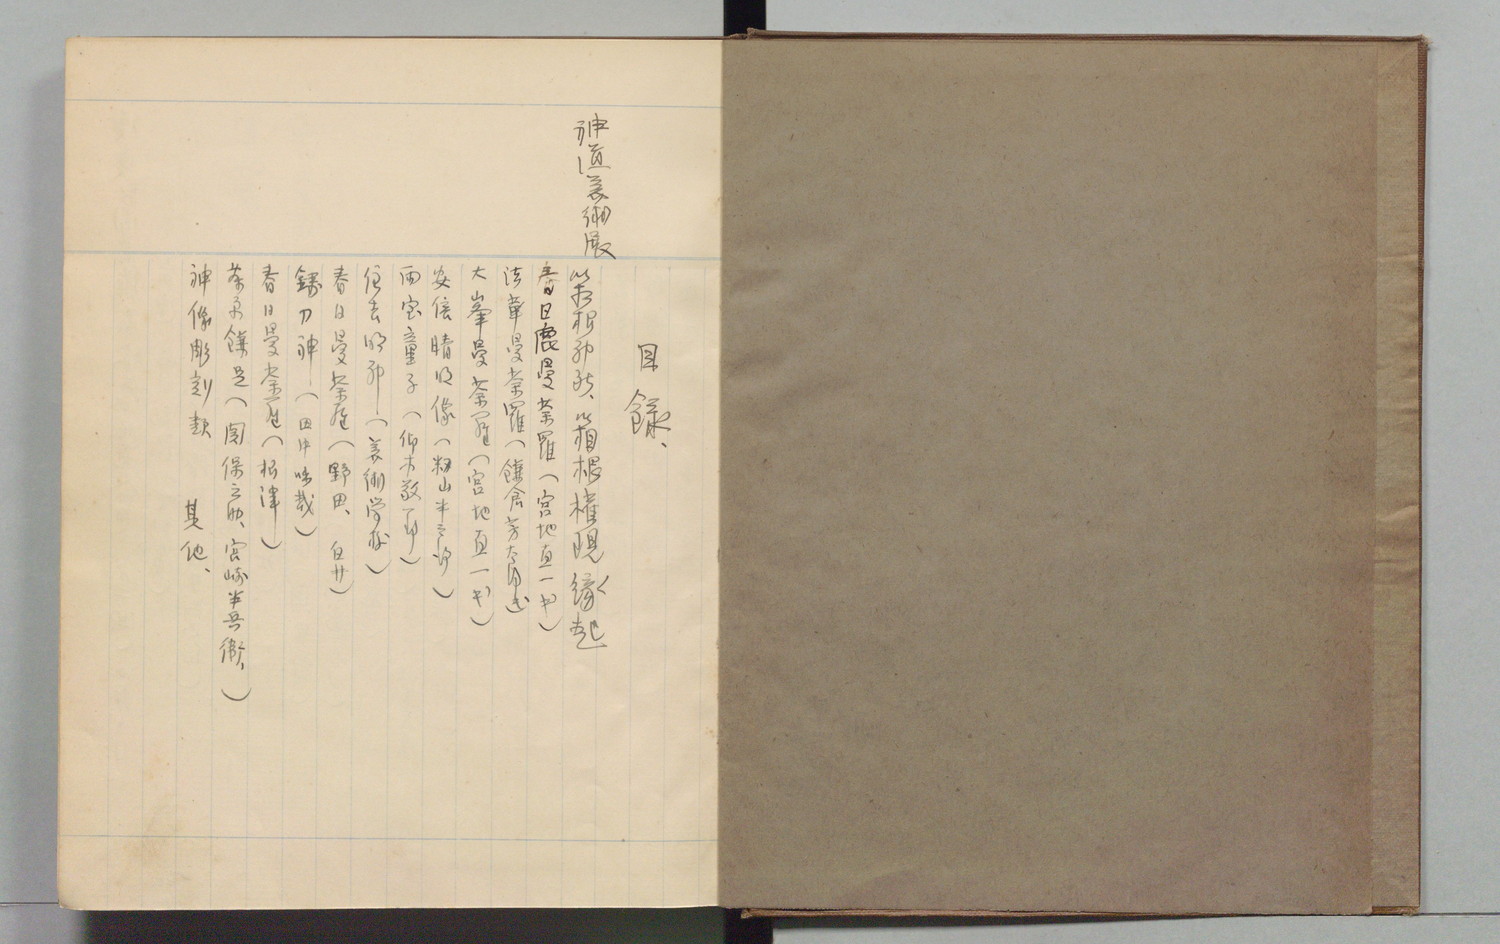 目録、
神道美術展
箱根神社、箱根権現縁起
春日鹿曼荼羅(宮地直一氏)
法華曼荼羅(鎌倉芳太郎氏)
大峯曼荼羅(宮地直一氏)
安倍晴明像(籾山半三郎)
雨宝童子(仰木敬一郎)
住吉明神(美術学校)
春日曼荼羅(野田、
神(田中
春日曼荼羅(根津)
鎌足(関保之助、宮崎半兵衛、)
神像彫刻類 其他、